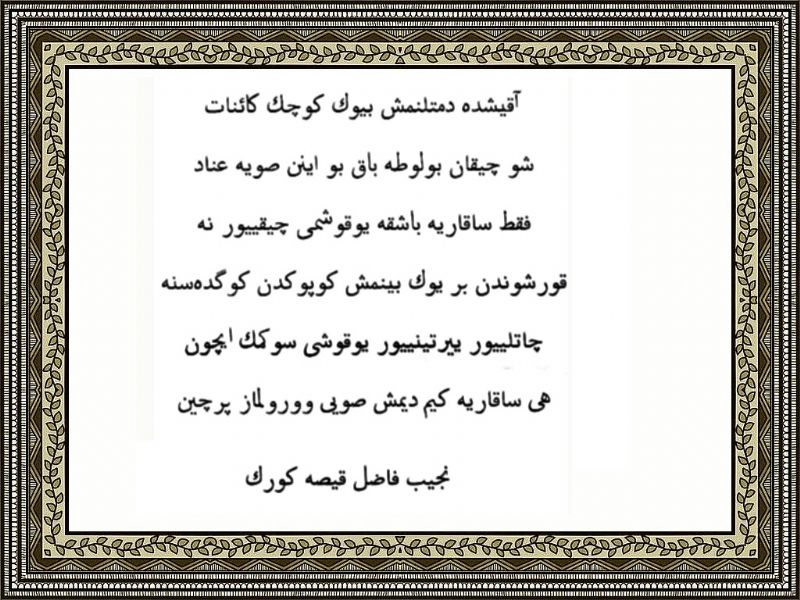 آقیشده دمتلنمش بیوك كوچك كائنات
شو چیقان بولوطه باق بو اینن صویه عناد
فقط ساقاریه باشقه یوقوشمی چیقییور نه
قورشوندن بر یوك بینمش كوپوكدن كوگده‌سنه
چاتلییور ییرتینییور یوقوشی سوكمك ایچون
هی ساقاریه كیم دیمش صویی وورولماز پرچین
نجیب فاضل قیصه كورك